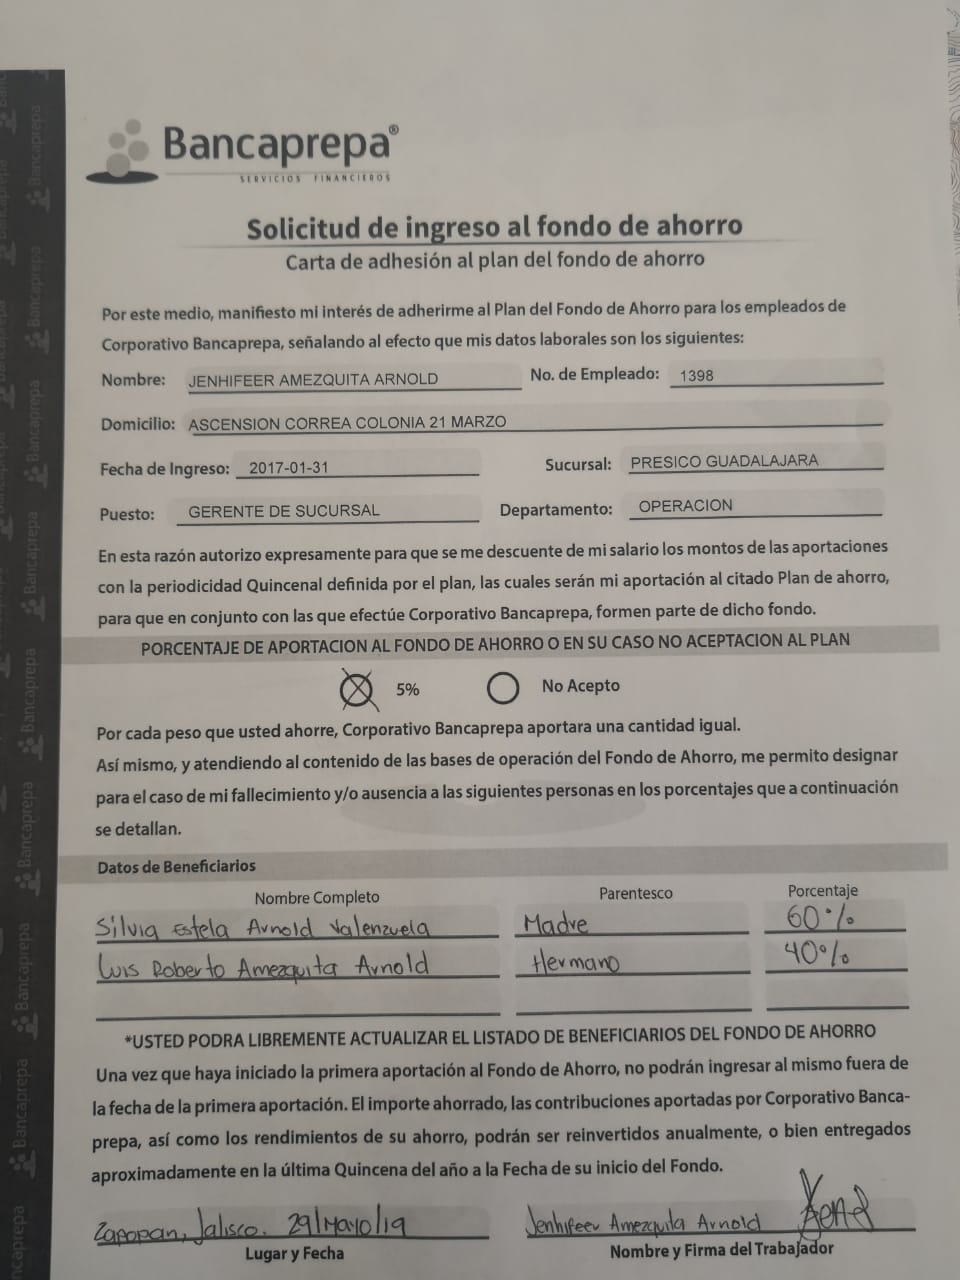 Bancaprepa®
SERVICIOS FINANCIEROS
Solicitud de ingreso al fondo de ahorro
Carta de adhesión al plan del fondo de ahorro
Por este medio, manifiesto mi interés de adherirme al Plan del Fondo de Ahorro para los empleados de
Corporativo Bancaprepa, señalando al efecto que mis datos laborales son los siguientes:
Nombre: JENHIFEER AMEZQUITA ARNOLD No. de Empleado: 1398
Domicilio: ASCENSION CORREA COLONIA 21 MARZO
Fecha de Ingreso: 2017-01-31 Sucursal: PRESICO GUADALAJARA
Puesto: GERENTE DE SUCURSAL Departamento: OPERACION
En esta razón autorizo expresamente para que se me descuente de mi salario los montos de las aportaciones
con la periodicidad Quincenal definida por el plan, las cuales serán mi aportación al citado Plan de ahorro,
para que en conjunto con las que efectúe Corporativo Bancaprepa, formen parte de dicho fondo.
PORCENTAJE DE APORTACION AL FONDO DE AHORRO O EN SU CASO NO ACEPTACION AL PLAN
5% No Acepto
Por cada peso que usted ahorre, Corporativo Bancaprepa aportara una cantidad igual.
Así mismo, y atendiendo al contenido de las bases de operación del Fondo de Ahorro, me permito designar
para el caso de mi fallecimiento y/o ausencia a las siguientes personas en los porcentajes que a continuación
se detallan.
Datos de Beneficiarios
Nombre Completo Parentesco Porcentaje
Silvia Estela Arnold Valenzuela Madre 60%
Luis Roberto Amezquita Arnold Hermano 40%
*USTED PODRA LIBREMENTE ACTUALIZAR EL LISTADO DE BENEFICIARIOS DEL FONDO DE AHORRO
Una vez que haya iniciado la primera aportación al Fondo de Ahorro, no podrán ingresar al mismo fuera de
la fecha de la primera aportación. El importe ahorrado, las contribuciones aportadas por Corporativo Banca-
prepa, así como los rendimientos de su ahorro, podrán ser reinvertidos anualmente, o bien entregados
aproximadamente en la última Quincena del año a la Fecha de su inicio del Fondo.
Zapopan, Jalisco. 29/Mayo/19 Jenhifeer Amezquita Arnold
Lugar y Fecha Nombre y Firma del Trabajador